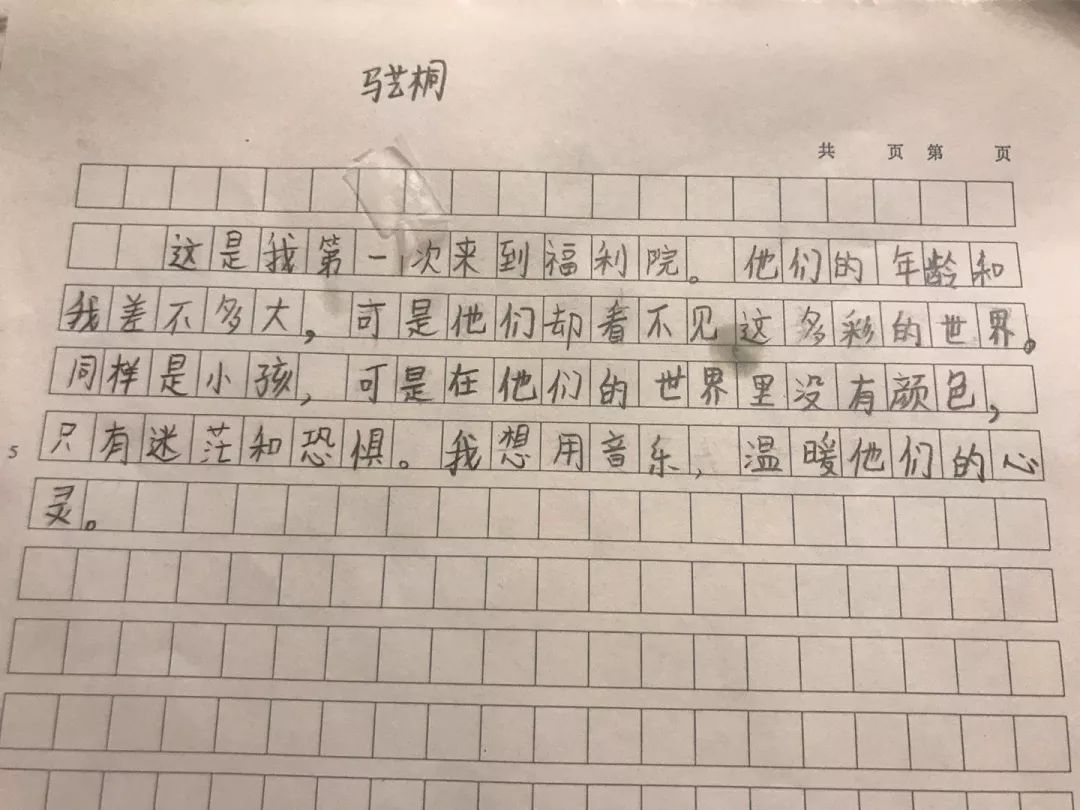 马艺桐
共 页 第 页
这是我第一次来到福利院。他们的年龄和
我差不多大，可是他们却看不见这多彩的世界。
同样是小孩，可是在他们的世界里没有颜色，
5 只有迷茫和恐惧。我想用音乐，温暖他们的心
灵。